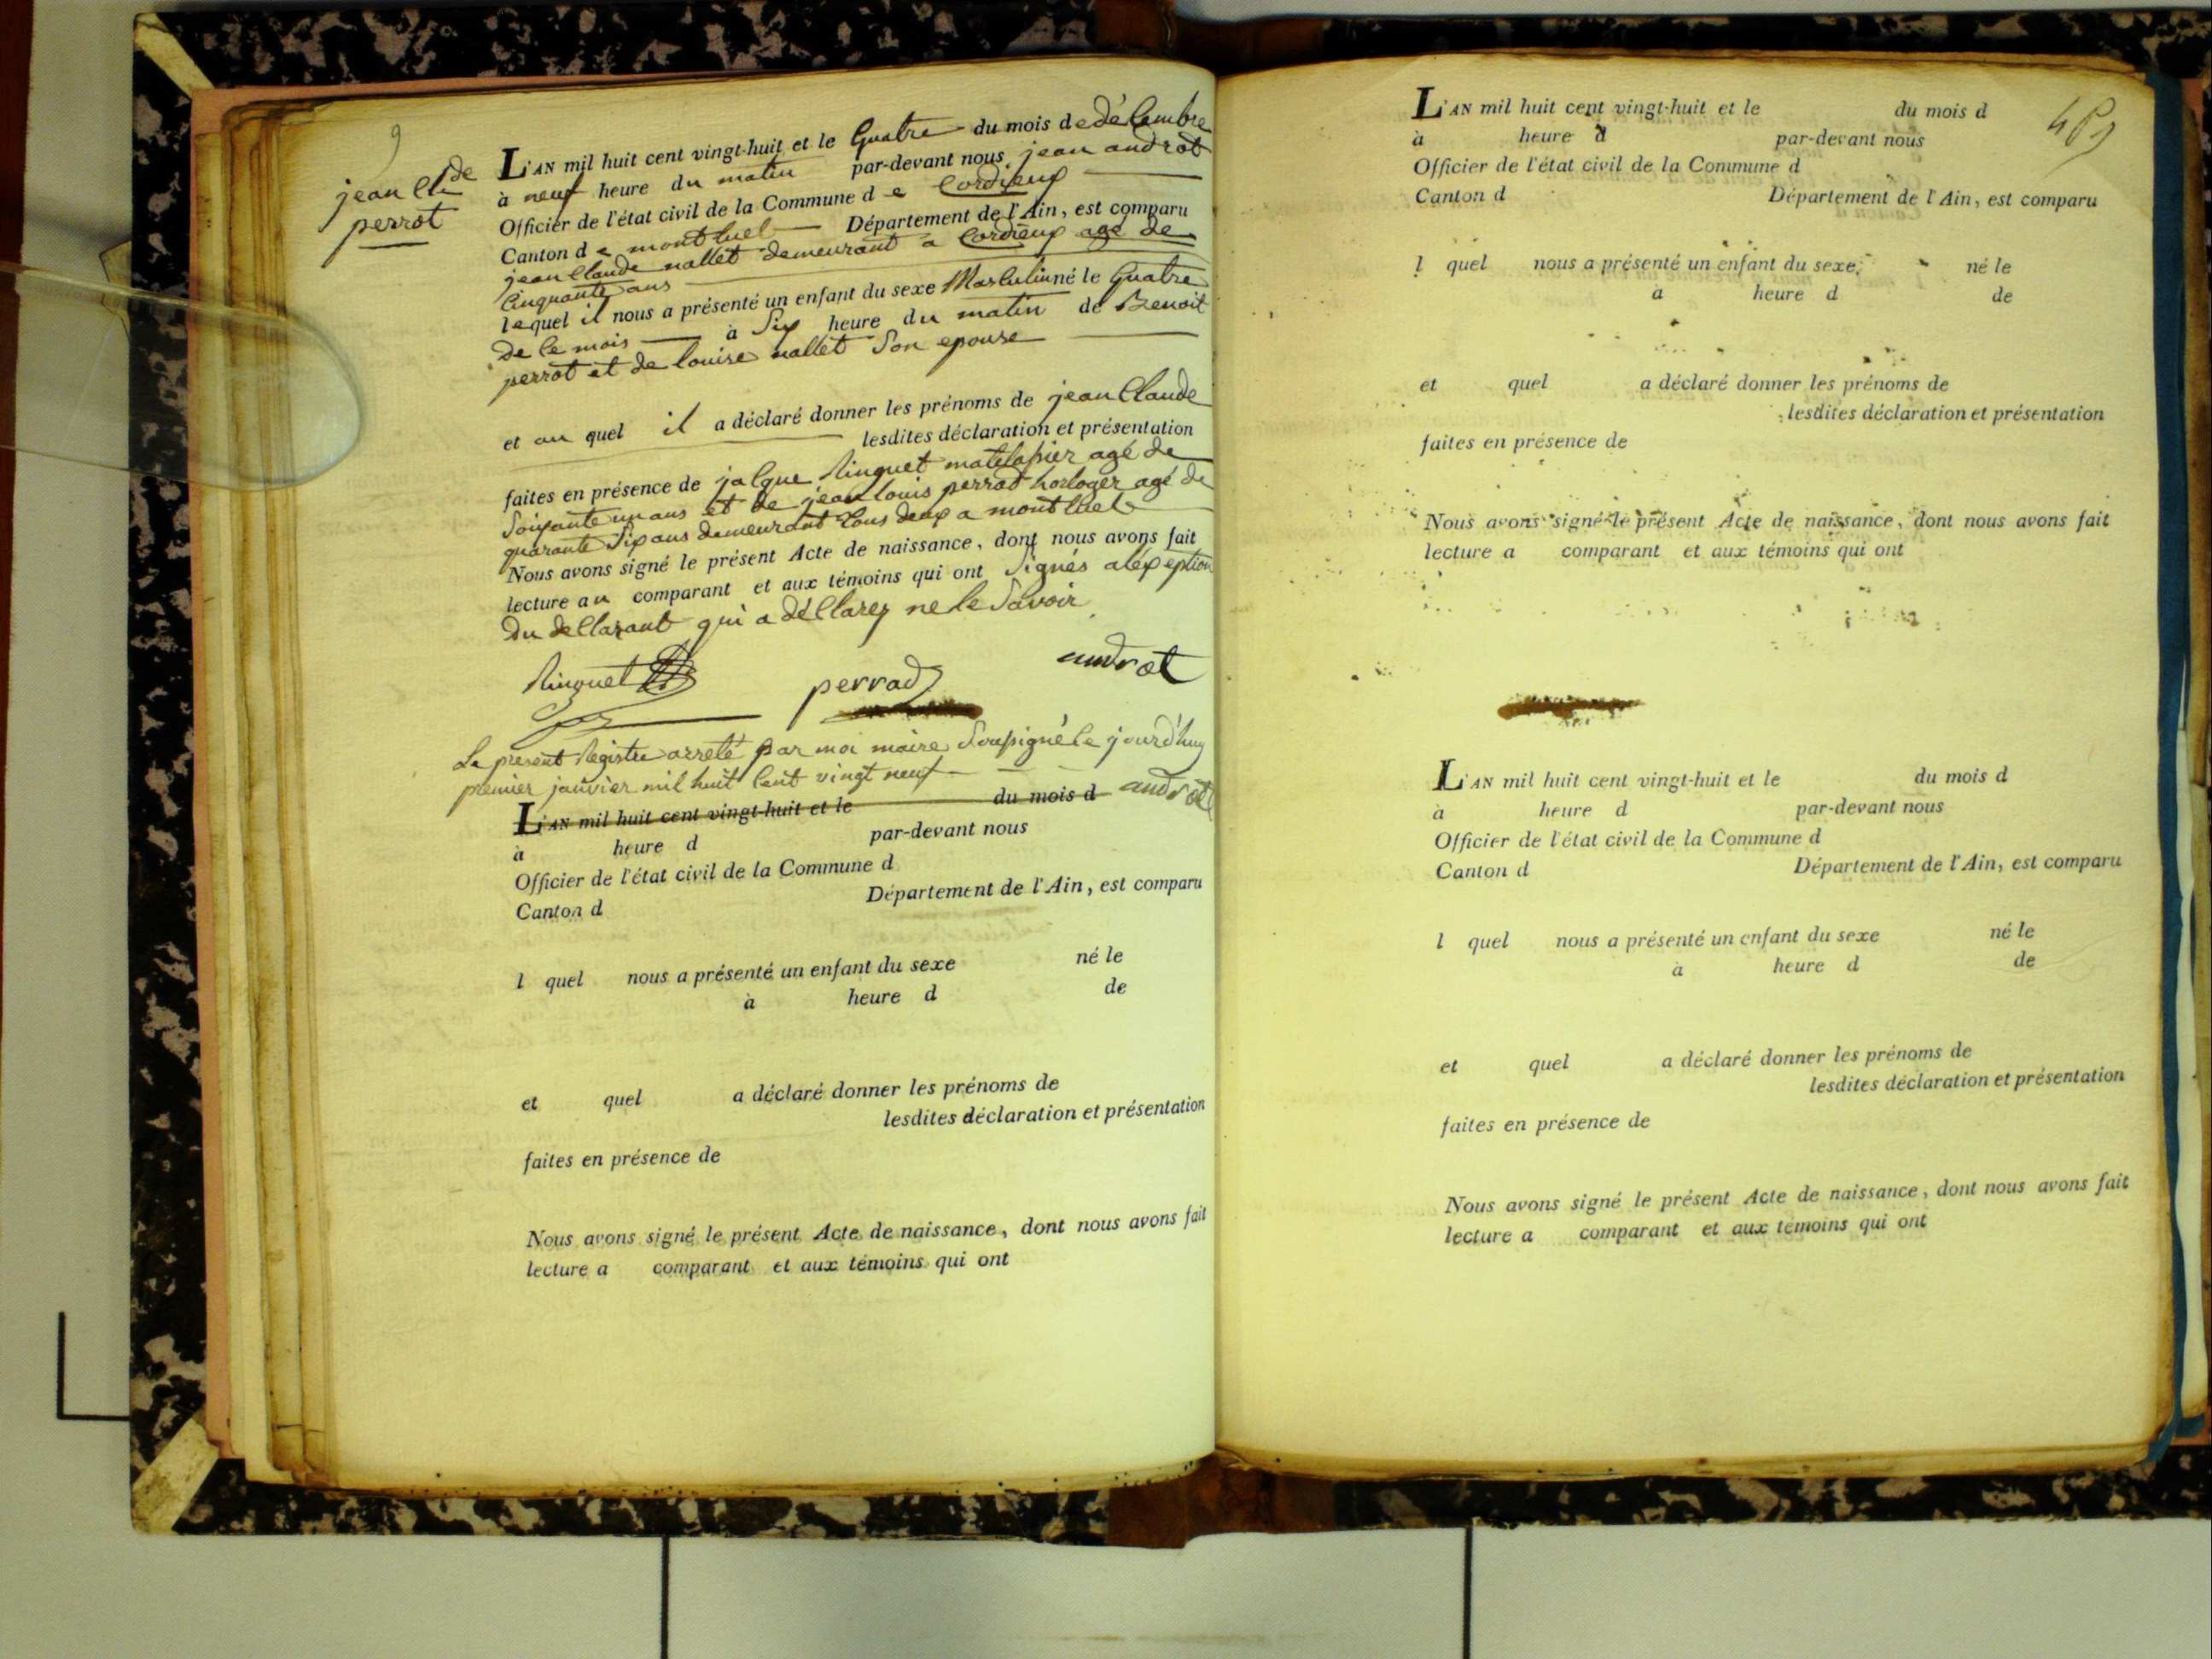 9
jean Cl de
perrot
L'AN mil huit cent vingt-huit et le Quatre du mois de décembre
à neuf heure du matin par-devant nous jean androt
Officier de l'état civil de la Commune de Cordieux
Canton de montluel Département de l'Ain, est comparu
jean Claude nallet demeurant a Cordieux agé de
Cinquante ans
lequel il nous a présenté un enfant du sexe Masculin né le Quatre
de Ce mois à Six heure du matin de Benoit
perrot et de louise nallet Son epouse
et au quel il a déclaré donner les prénoms de jean Claude
lesdites déclaration et présentation
faites en présence de jacque Ringuet matelassier agé de
Soixante un ans et de jean louis perrad horloger agé de
quarante Six ans demeurant tous deux a montluel
Nous avons signé le présent Acte de naissance, dont nous avons fait
lecture au comparant et aux témoins qui ont Signés a lexception
Du declarant qui a déClarez ne le Savoir
Ringuet perrad androt
Le présent Registre arreté par moi maire Soussigné Ce jourd'huy
premier janvier mil huit Cent vingt neuf androt
L'AN mil huit cent vingt-huit et le du mois d
à heure d par-devant nous
Officier de l'état civil de la Commune d
Canton d Département de l'Ain, est comparu
l quel nous a présenté un enfant du sexe né le
à heure d de
et quel a déclaré donner les prénoms de
lesdites déclaration et présentation
faites en présence de
Nous avons signé le présent Acte de naissance, dont nous avons fait
lecture a comparant et aux témoins qui ont
L'AN mil huit cent vingt-huit et le du mois d
à heure d par-devant nous
Officier de l'état civil de la Commune d
Canton d Département de l'Ain, est comparu
l quel nous a présenté un enfant du sexe né le
à heure d de
et quel a déclaré donner les prénoms de
lesdites déclaration et présentation
faites en présence de
Nous avons signé le présent Acte de naissance, dont nous avons fait
lecture a comparant et aux témoins qui ont
L'AN mil huit cent vingt-huit et le du mois d
à heure d par-devant nous
Officier de l'état civil de la Commune d
Canton d Département de l'Ain, est comparu
l quel nous a présenté un enfant du sexe né le
à heure d de
et quel a déclaré donner les prénoms de
lesdites déclaration et présentation
faites en présence de
Nous avons signé le présent Acte de naissance, dont nous avons fait
lecture a comparant et aux témoins qui ont